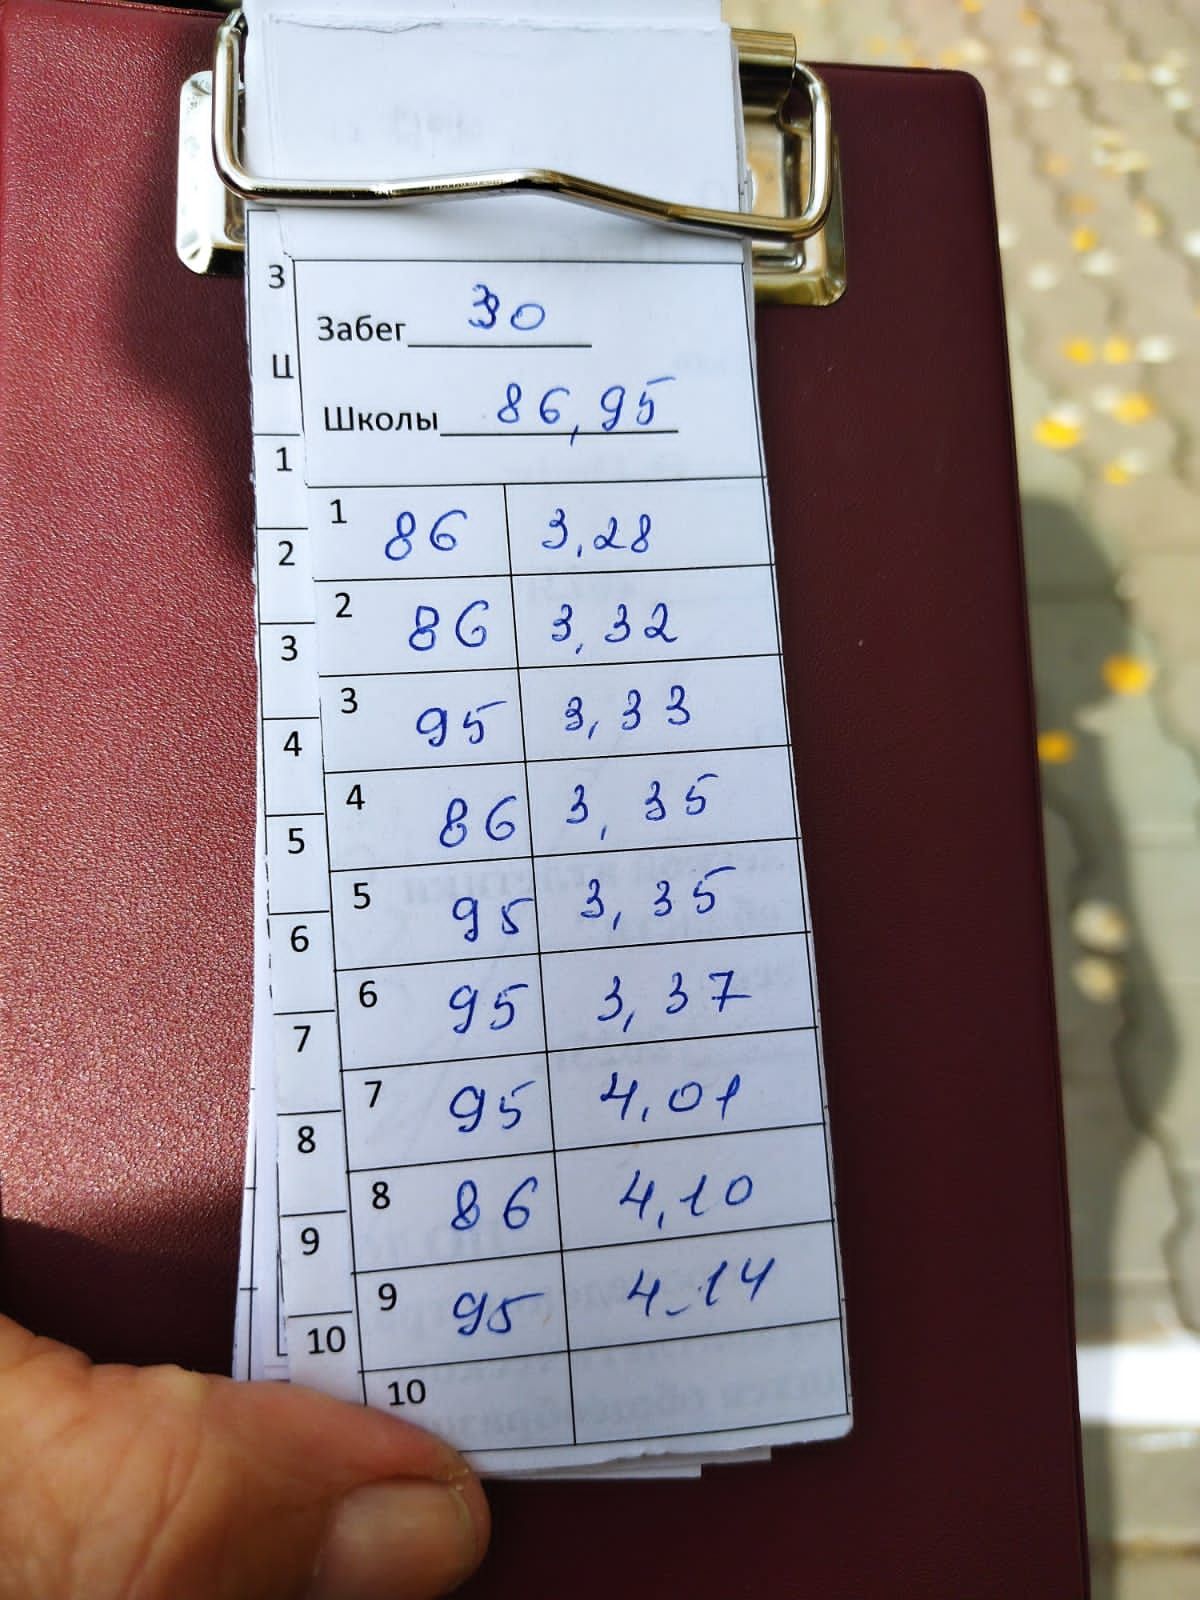 З
Ш
1
2
3
4
5
6
7
8
9
10
Забег 30
Школы 86,95
1 86 3,28
2 86 3,32
3 95 3,33
4 86 3, 35
5 95 3,35
6 95 3,37
7 95 4,01
8 86 4,10
9 95 4_14
10